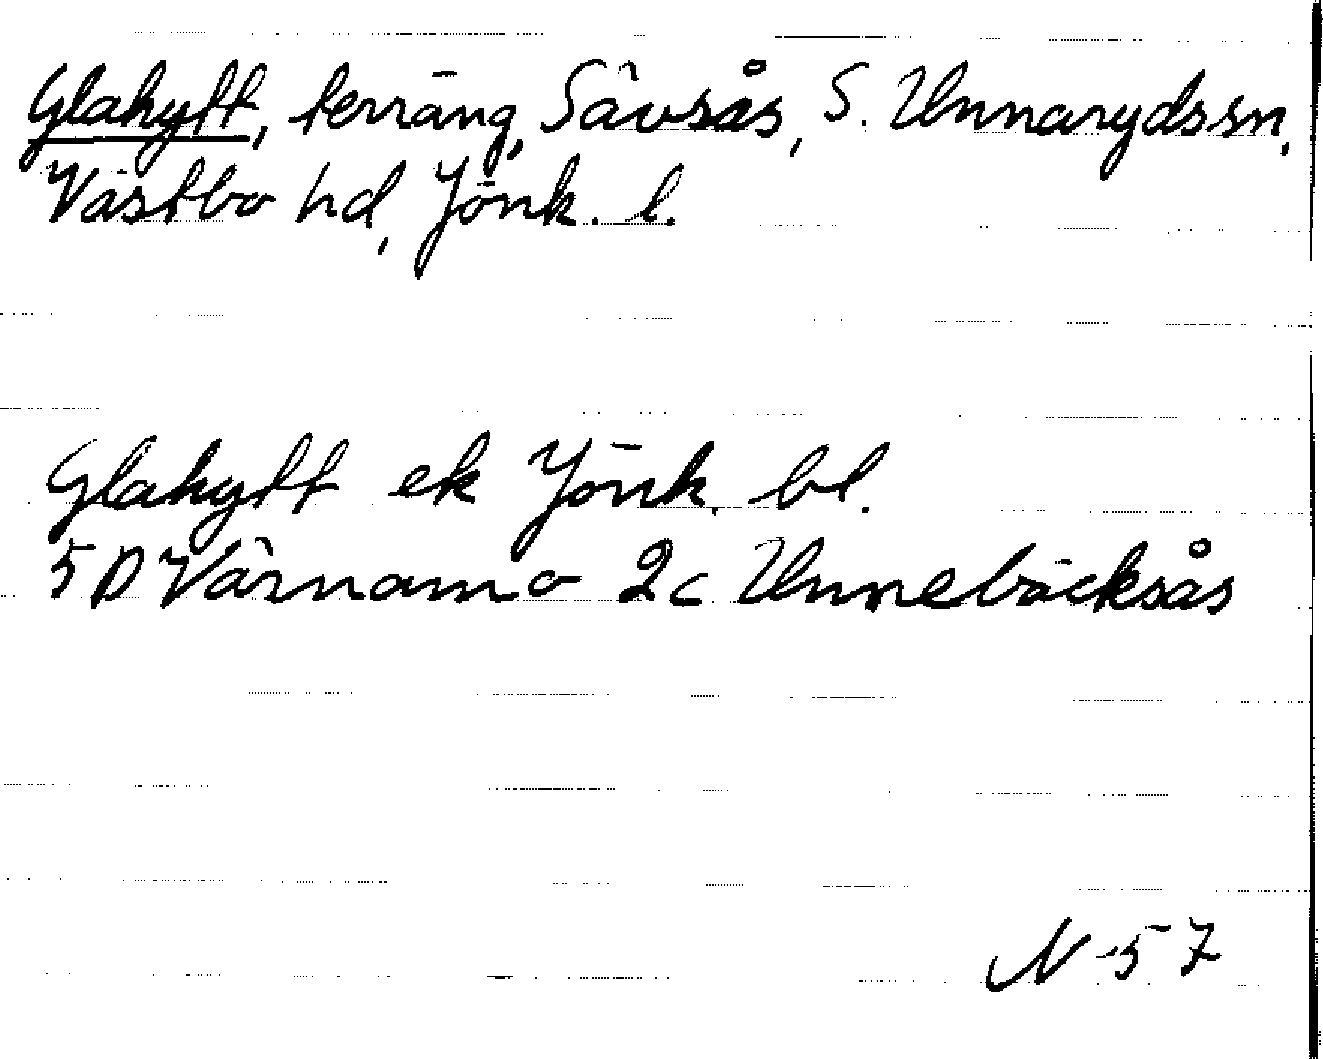 Glahylt, terräng, Sävsås, S. Unnarydssn,
Västbo hd, Jönk. l.
Glahylt ek Jönk. bl.
5D Värnamo 2c Unnebäcksås
N-57